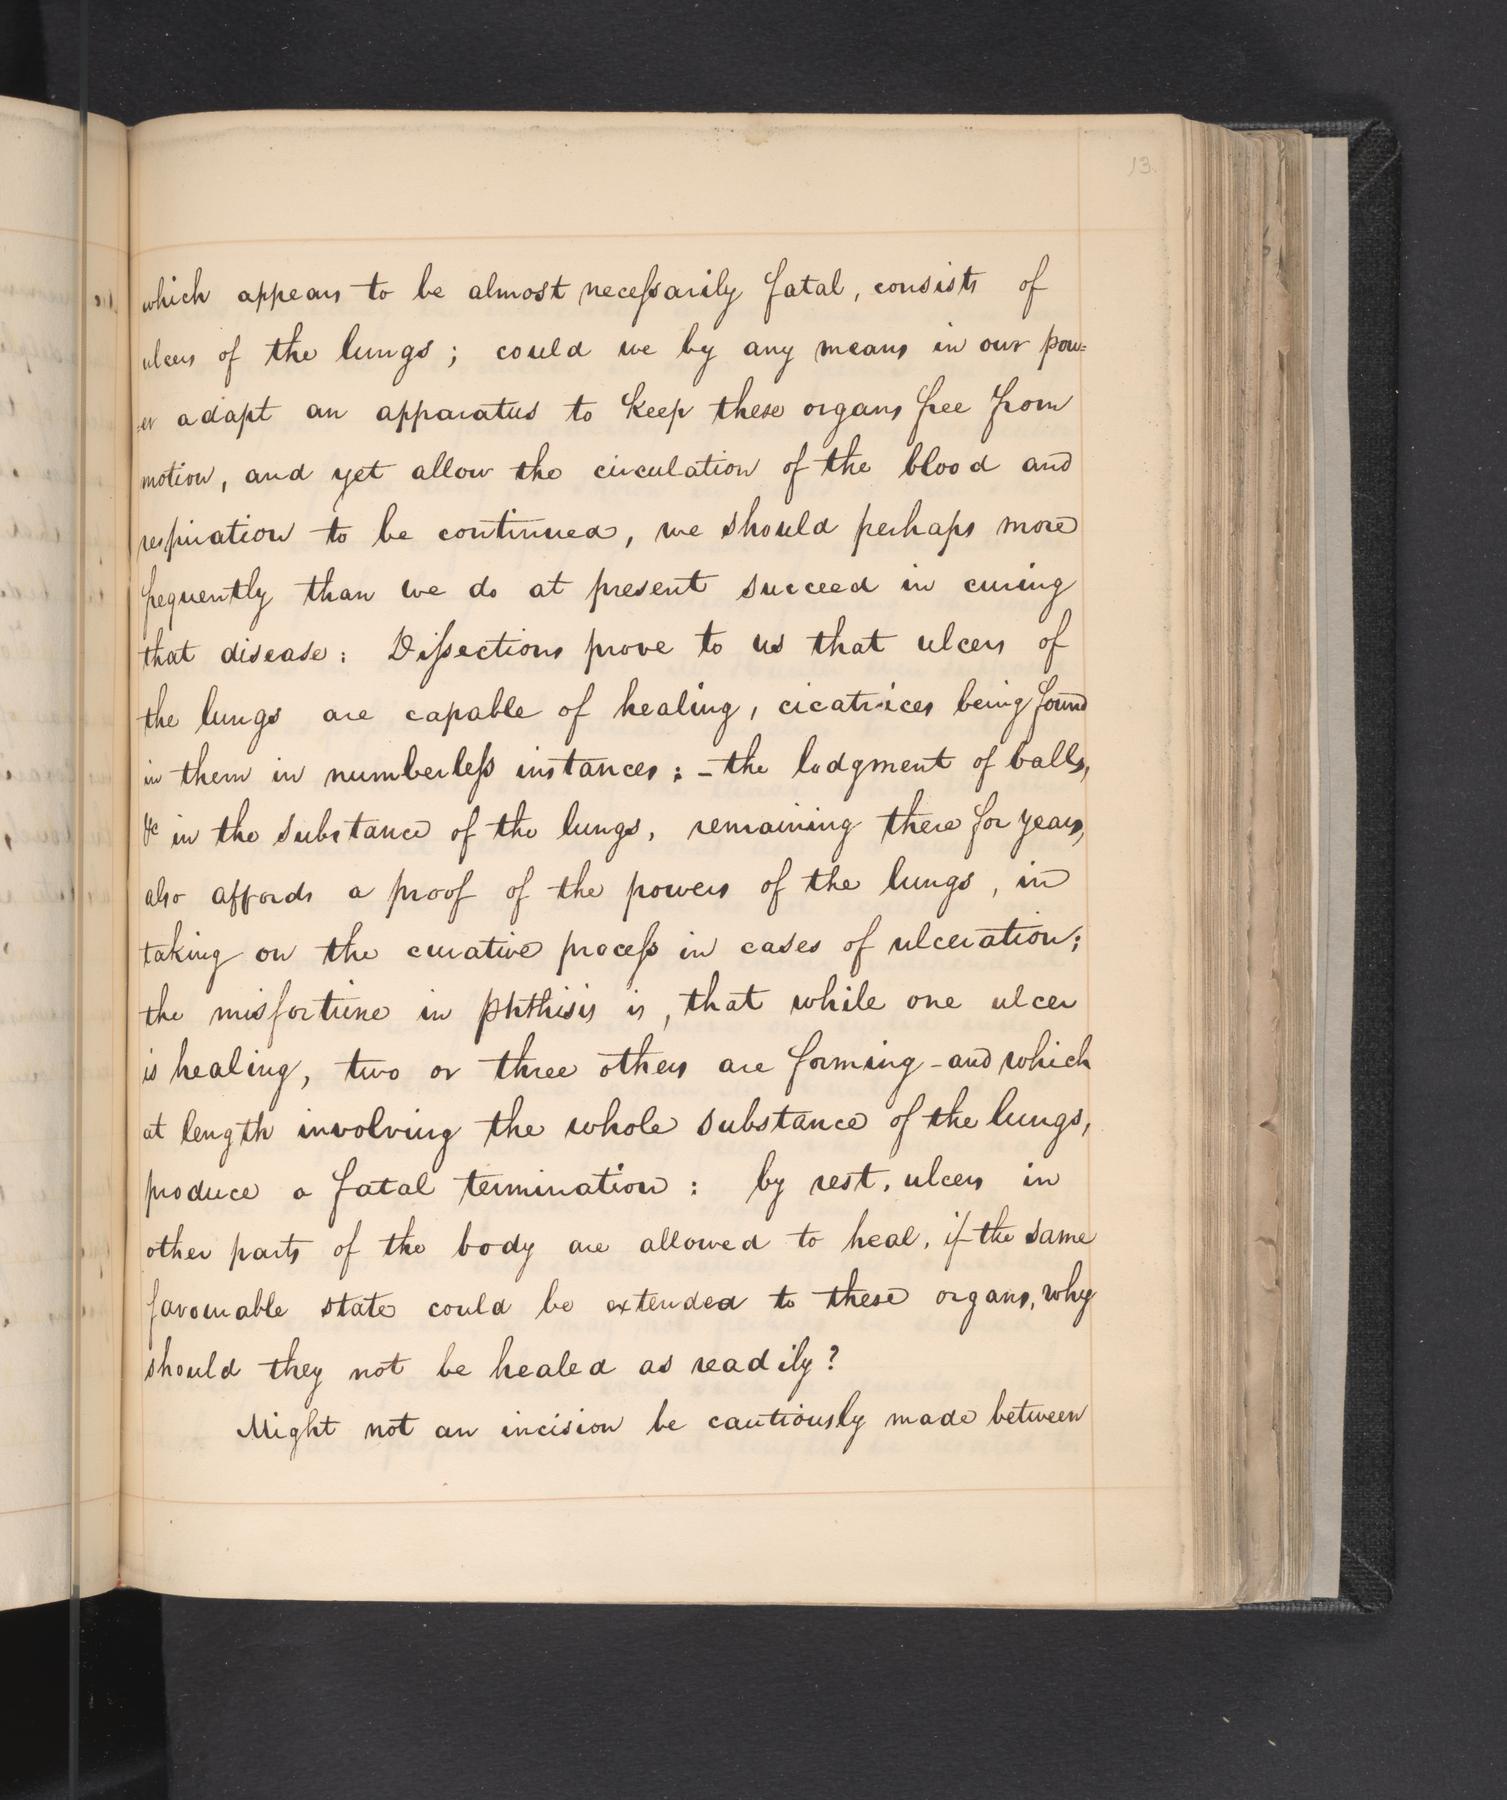 13.
which appears to be almost neceſsarily fatal, consists of
ulcers of the lungs; could we by any means in our pow=
=er adapt an apparatus to keep these organs free from
motion, and yet allow the circulation of the blood and
respiration to be continued, we should perhaps more
frequently than we do at present succeed in curing
that disease: Diſsections prove to us that ulcers of
the lungs are capable of healing, cicatrices being found
in them in numberleſs instances: – the lodgment of balls,
&c in the substance of the lungs, remaining there for years,
also affords a proof of the powers of the lungs, in
taking on the curative proceſs in cases of ulceration;
the misfortune in phthisis is, that while one ulcer
is healing, two or three others are forming – and which
at length involving the whole substance of the lungs,
produce a fatal termination: by rest, ulcers in
other parts of the body are allowed to heal, if the same
favourable state could be extended to these organs, why
should they not be healed as readily?
Might not an incision be cautiously made between